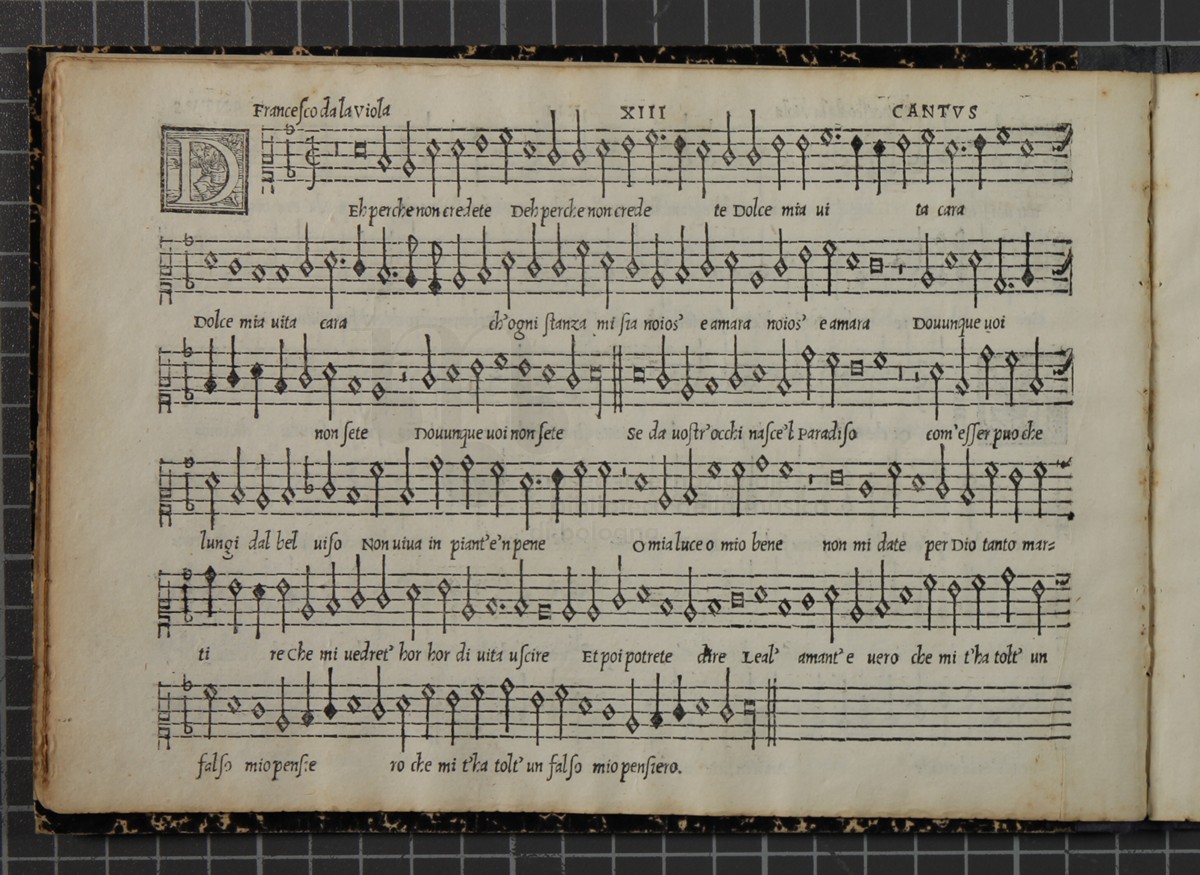 Francesco da la Viola XIII CANTVS
DEh perche non credete Deh perche non crede te Dolce mia ui ta cara
Dolce mia uita cara ch'ogni stanza mi sia noios' e amara noios' e amara Douunque uoi
non sete Douunque uoi non sete Se da uostr'occhi nasce'l Paradiso com'esser puo che
lungi dal bel uiso Non uiua in piant'e'n pene O mia luce o mio bene non mi date per Dio tanto mar=
ti re Che mi uedret' hor hor di uita uscire Et poi potrete dire Leal' amant'e uero che mi t'ha tolt' un
falso mio pensie ro che mi t'ha tolt' un falso mio pensiero.